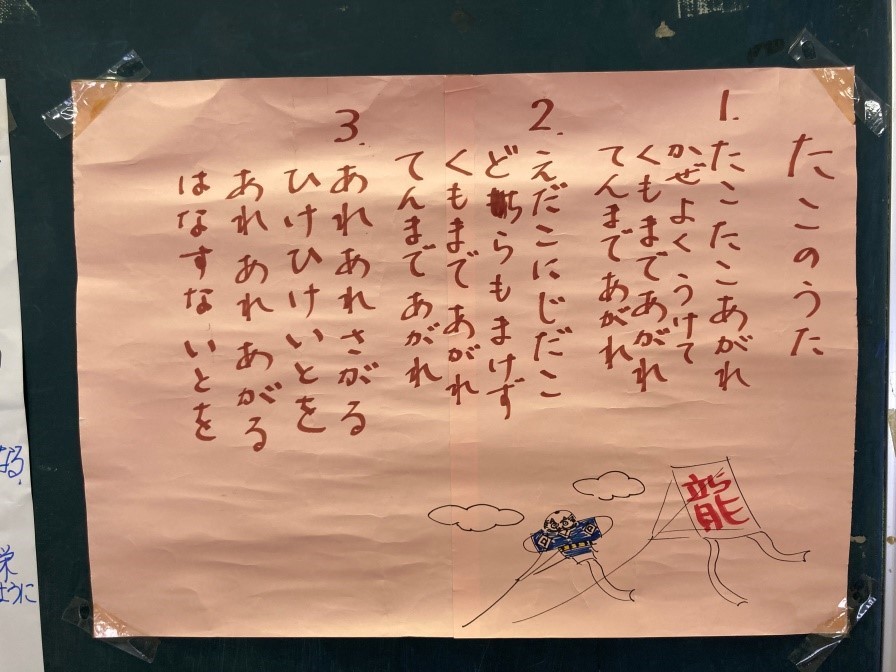 たこのうた
1.
たこたこあがれ
かぜよくうけて
くもまであがれ
てんまであがれ
2.
えだこにじだこ
どちらもまけず
くもまであがれ
てんまであがれ
3.
あれあれさがる
ひけひけいとを
あれあれあがる
はなすないとを
龍
なる
栄
ように